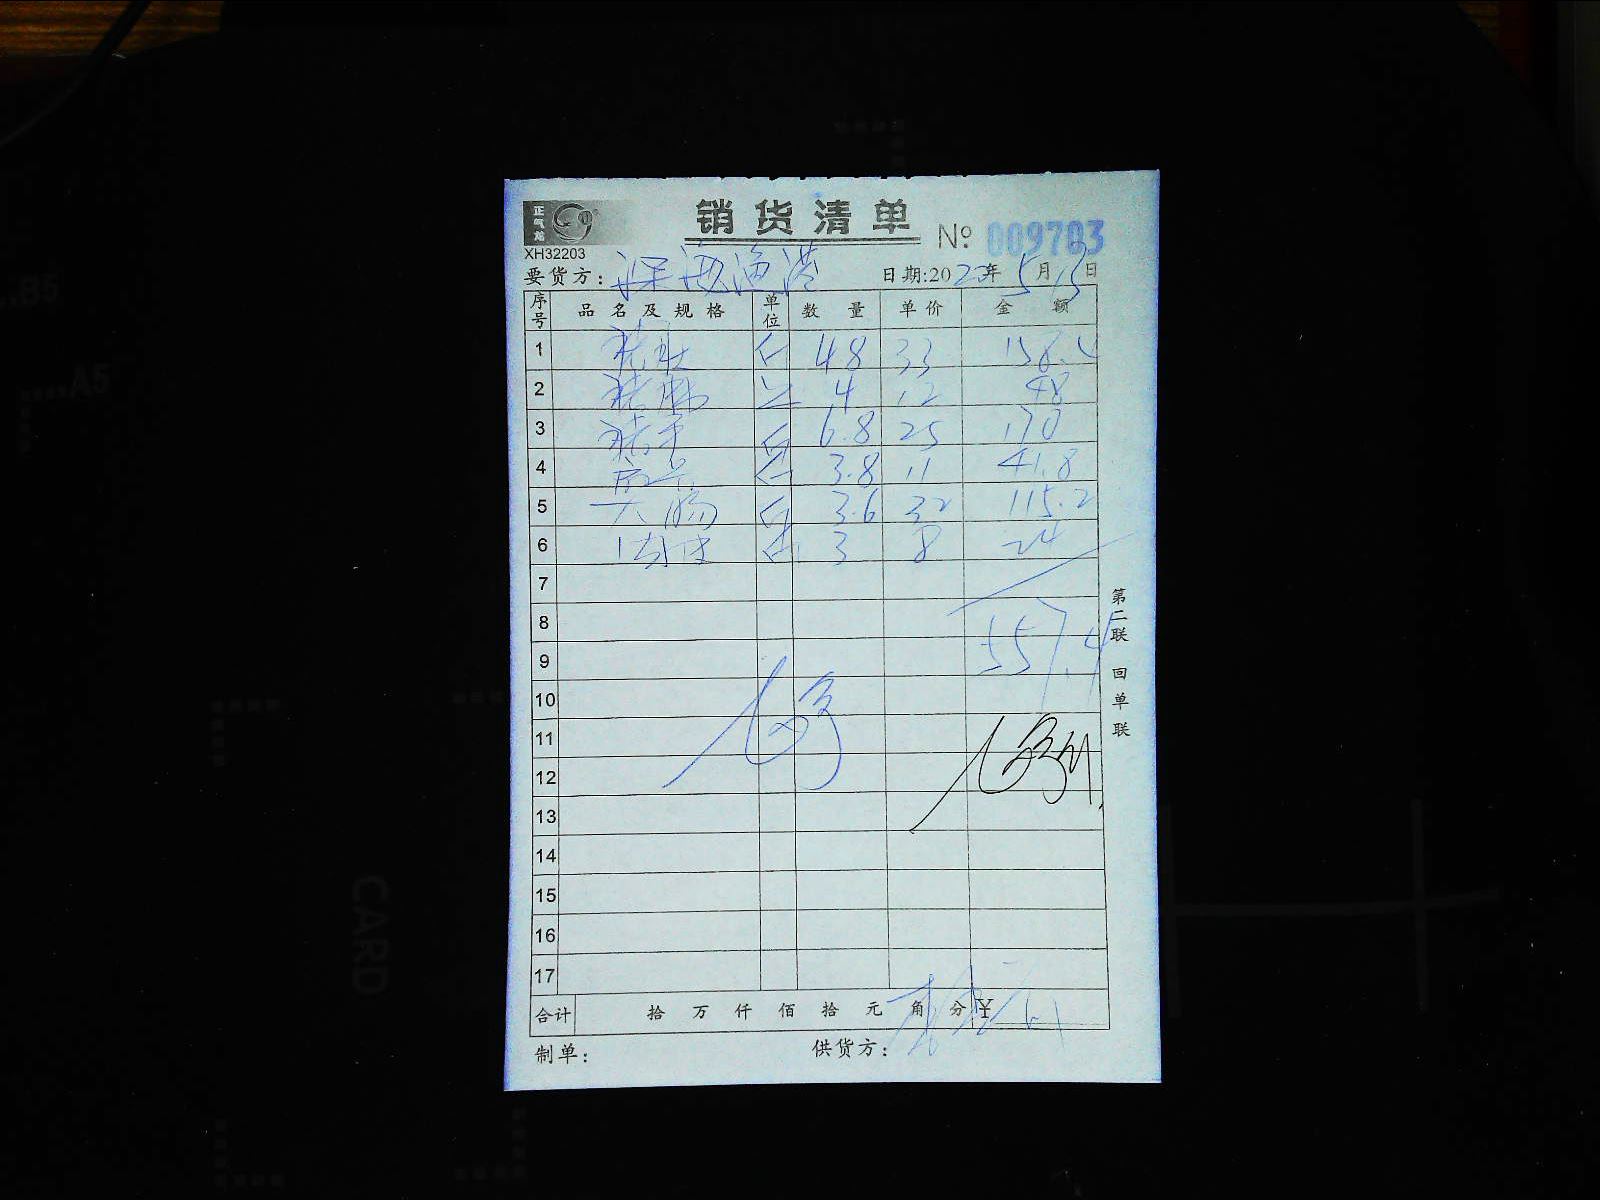 正气龙
销货清单
№ 009703
XH32203
要货方: 深海渔港 日期:2020年5月13日
序号 品名及规格 单位 数量 单价 金额
1 猪肚 斤 4.8 33 158.4
2 猪 斤 4 12 48
3 猪手 斤 6.8 25 170
4 斤 3.8 11 41.8
5 大肠 斤 3.6 32 115.2
6 斤 3 8 24
7
8
557.4
9
10
11
12
13
14
15
16
17
合计 拾 万 仟 佰 拾 元 角 分 ¥
制单: 供货方:
第二联 回单联
..B5
....A5
CARD